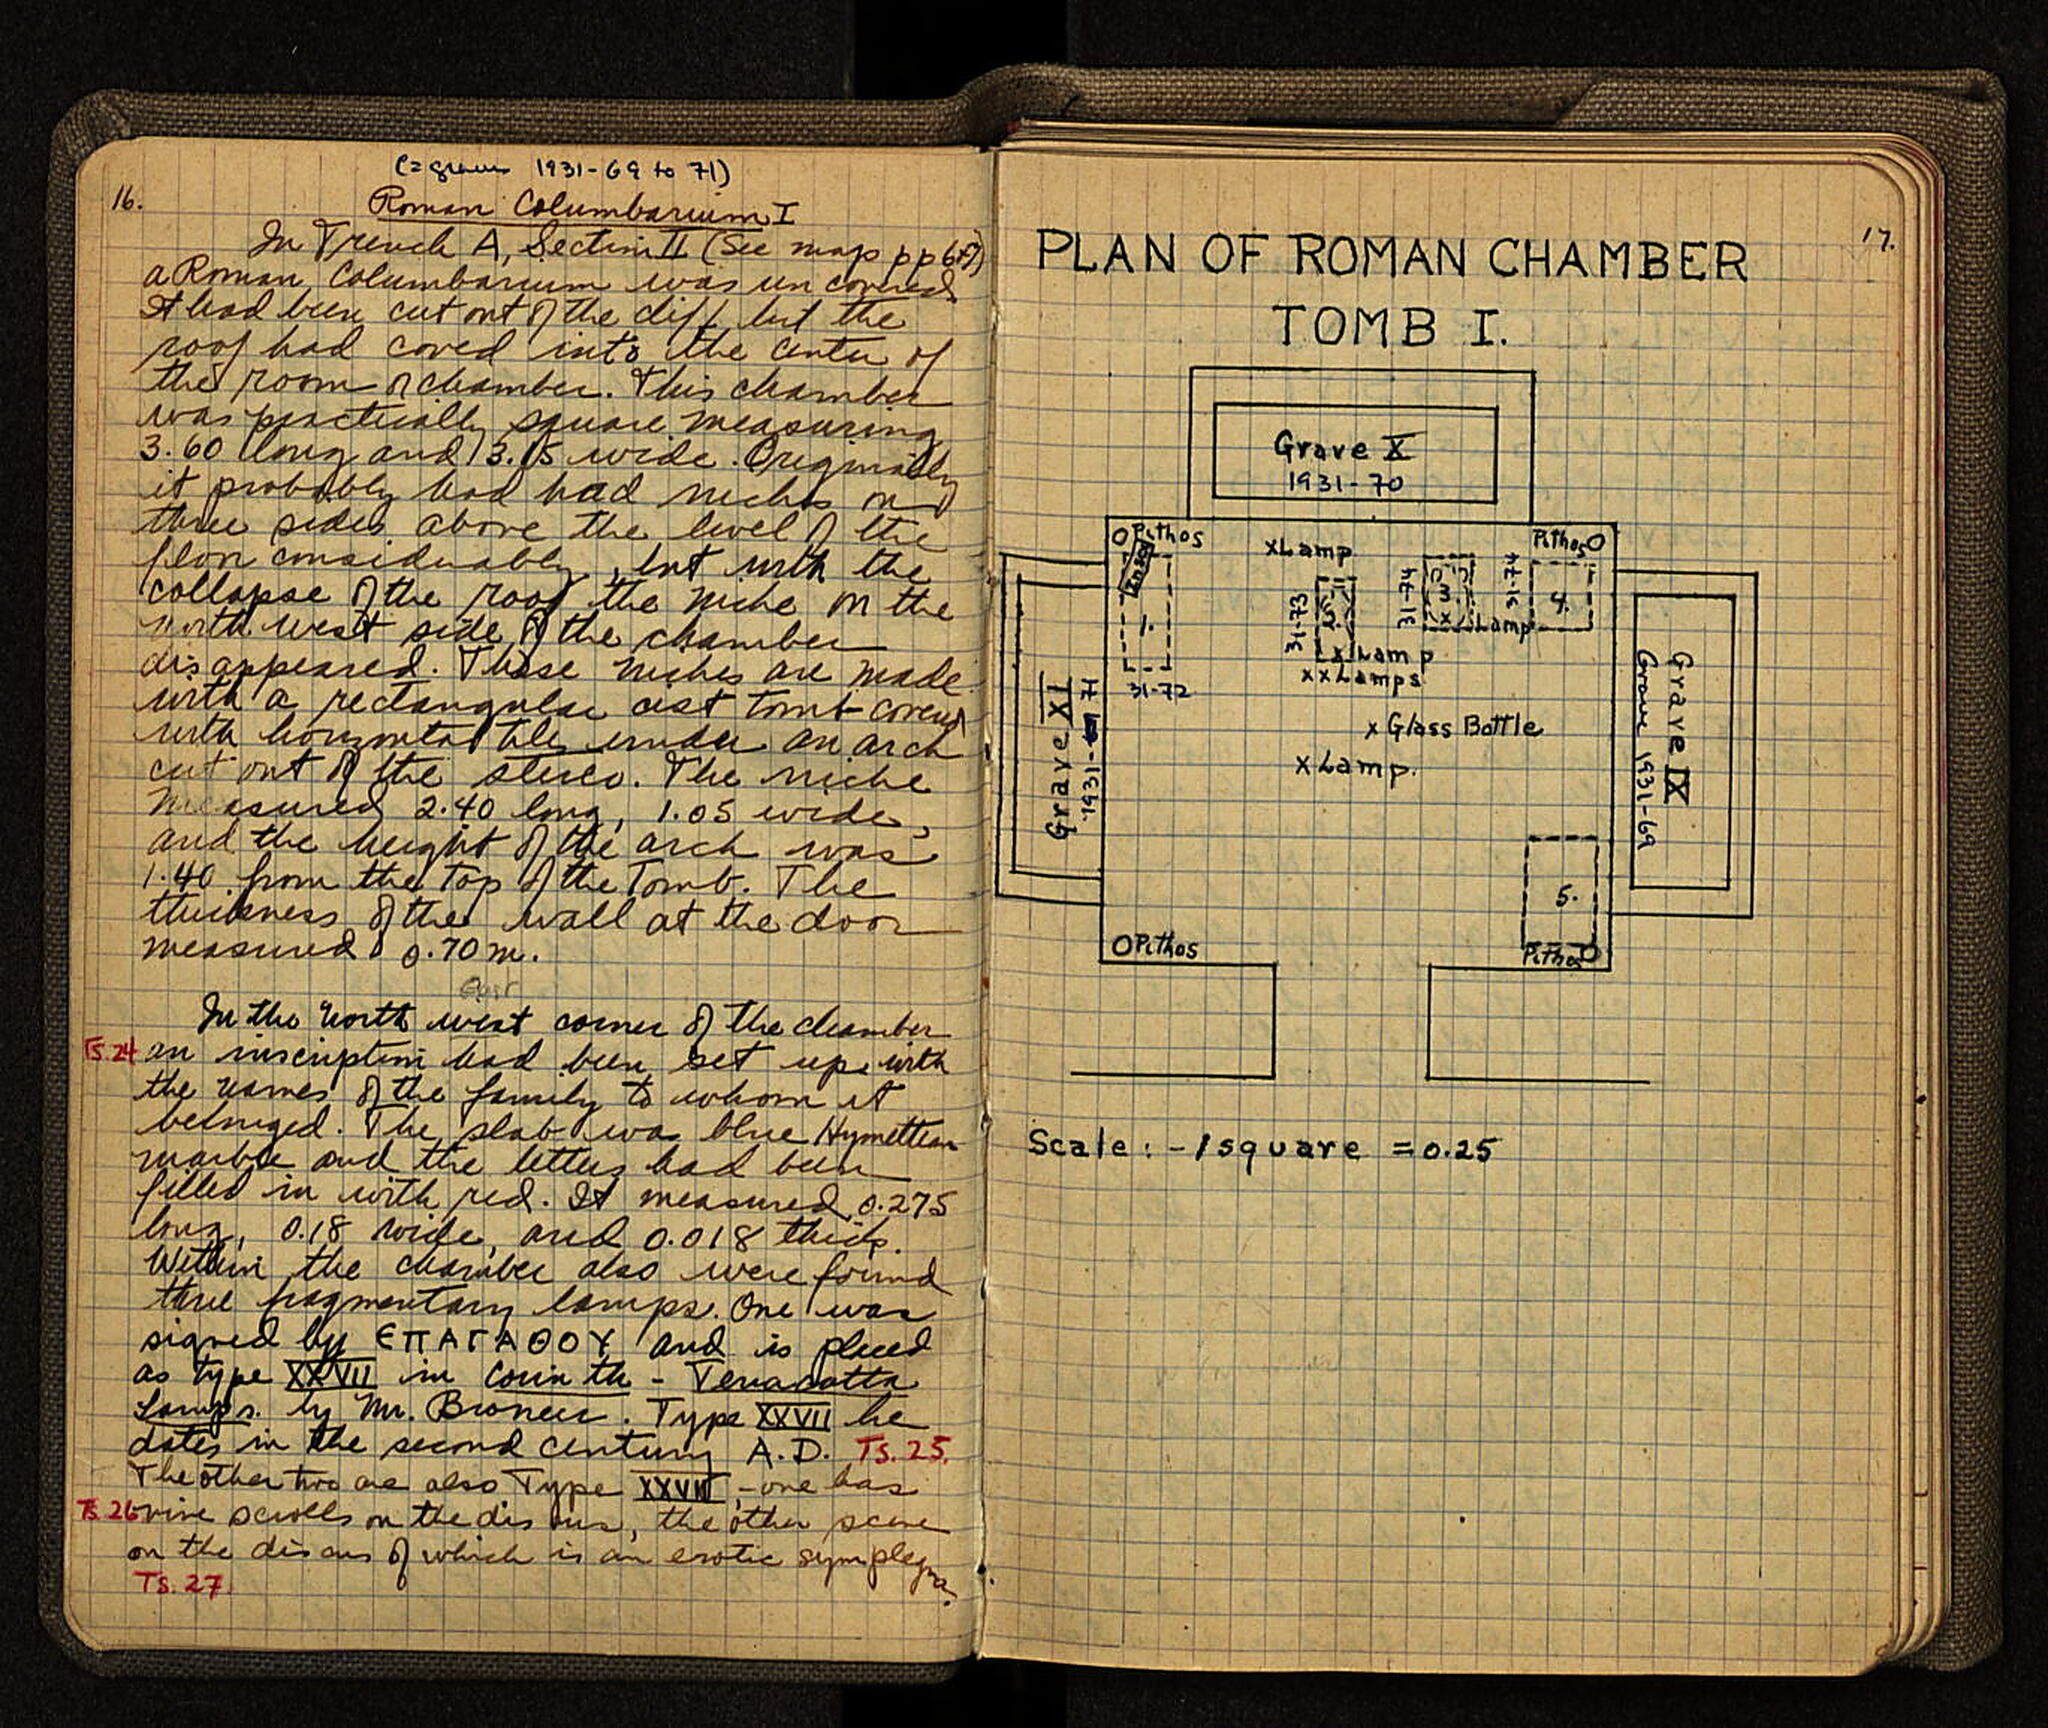 (= graves 1931-69 to 71)
16.
Roman Columbarium I
In Trench A, Section II (See map pp 6+7)
a Roman Columbarium was uncovered.
It had been cut out of the cliff but the
roof had caved into the center of
the room or chamber. This chamber
was practically square measuring
3.60 long and 3.15 wide. Originally
it probably had had niches on
three sides above the level of the
floor considerably, but with the
collapse of the roof the niche on the
north west side of the chamber
disappeared. These niches are made
with a rectangular cist tomb covered
with horizontal tiles under an arch
cut out of the stereo. The niche
measured 2.40 long, 1.05 wide,
and the height of the arch was
1.40 from the top of the tomb. The
thickness of the wall at the door
measured 0.70 m.
East
In the North west corner of the chamber
TS. 24 an inscription had been set up with
the names of the family to whom it
belonged. The slab was blue Hymettian
marble and the letters had been
filled in with red. It measured 0.275
long, 0.18 wide, and 0.018 thick.
Within the chamber also were found
three fragmentary lamps. One was
signed by ЄΠΑΓΑΘΟΥ and is placed
as type XXVII in Corinth - Terracotta
Lamps. by Mr. Broneer. Type XXVII he
dates in the second century A.D. TS. 25.
The other two are also Type XXVII, - one has
TS. 26 vine scrolls on the discus, the other scene
on the discus of which is an erotic symplegma.
TS. 27
17.
PLAN OF ROMAN CHAMBER
TOMB I.
Grave X
1931-70
Pithos
xLamp
Pithos
Insc.
1.
31-72
31-73
2.
31-74
3.
x Lamp
31-74
4.
x Lamp
xxLamps
x Glass Bottle
xLamp.
Grave XI
1931-71
Grave IX
Grave 1931-69
5.
Pithos
Pithos
Scale: - 1 square = 0.25